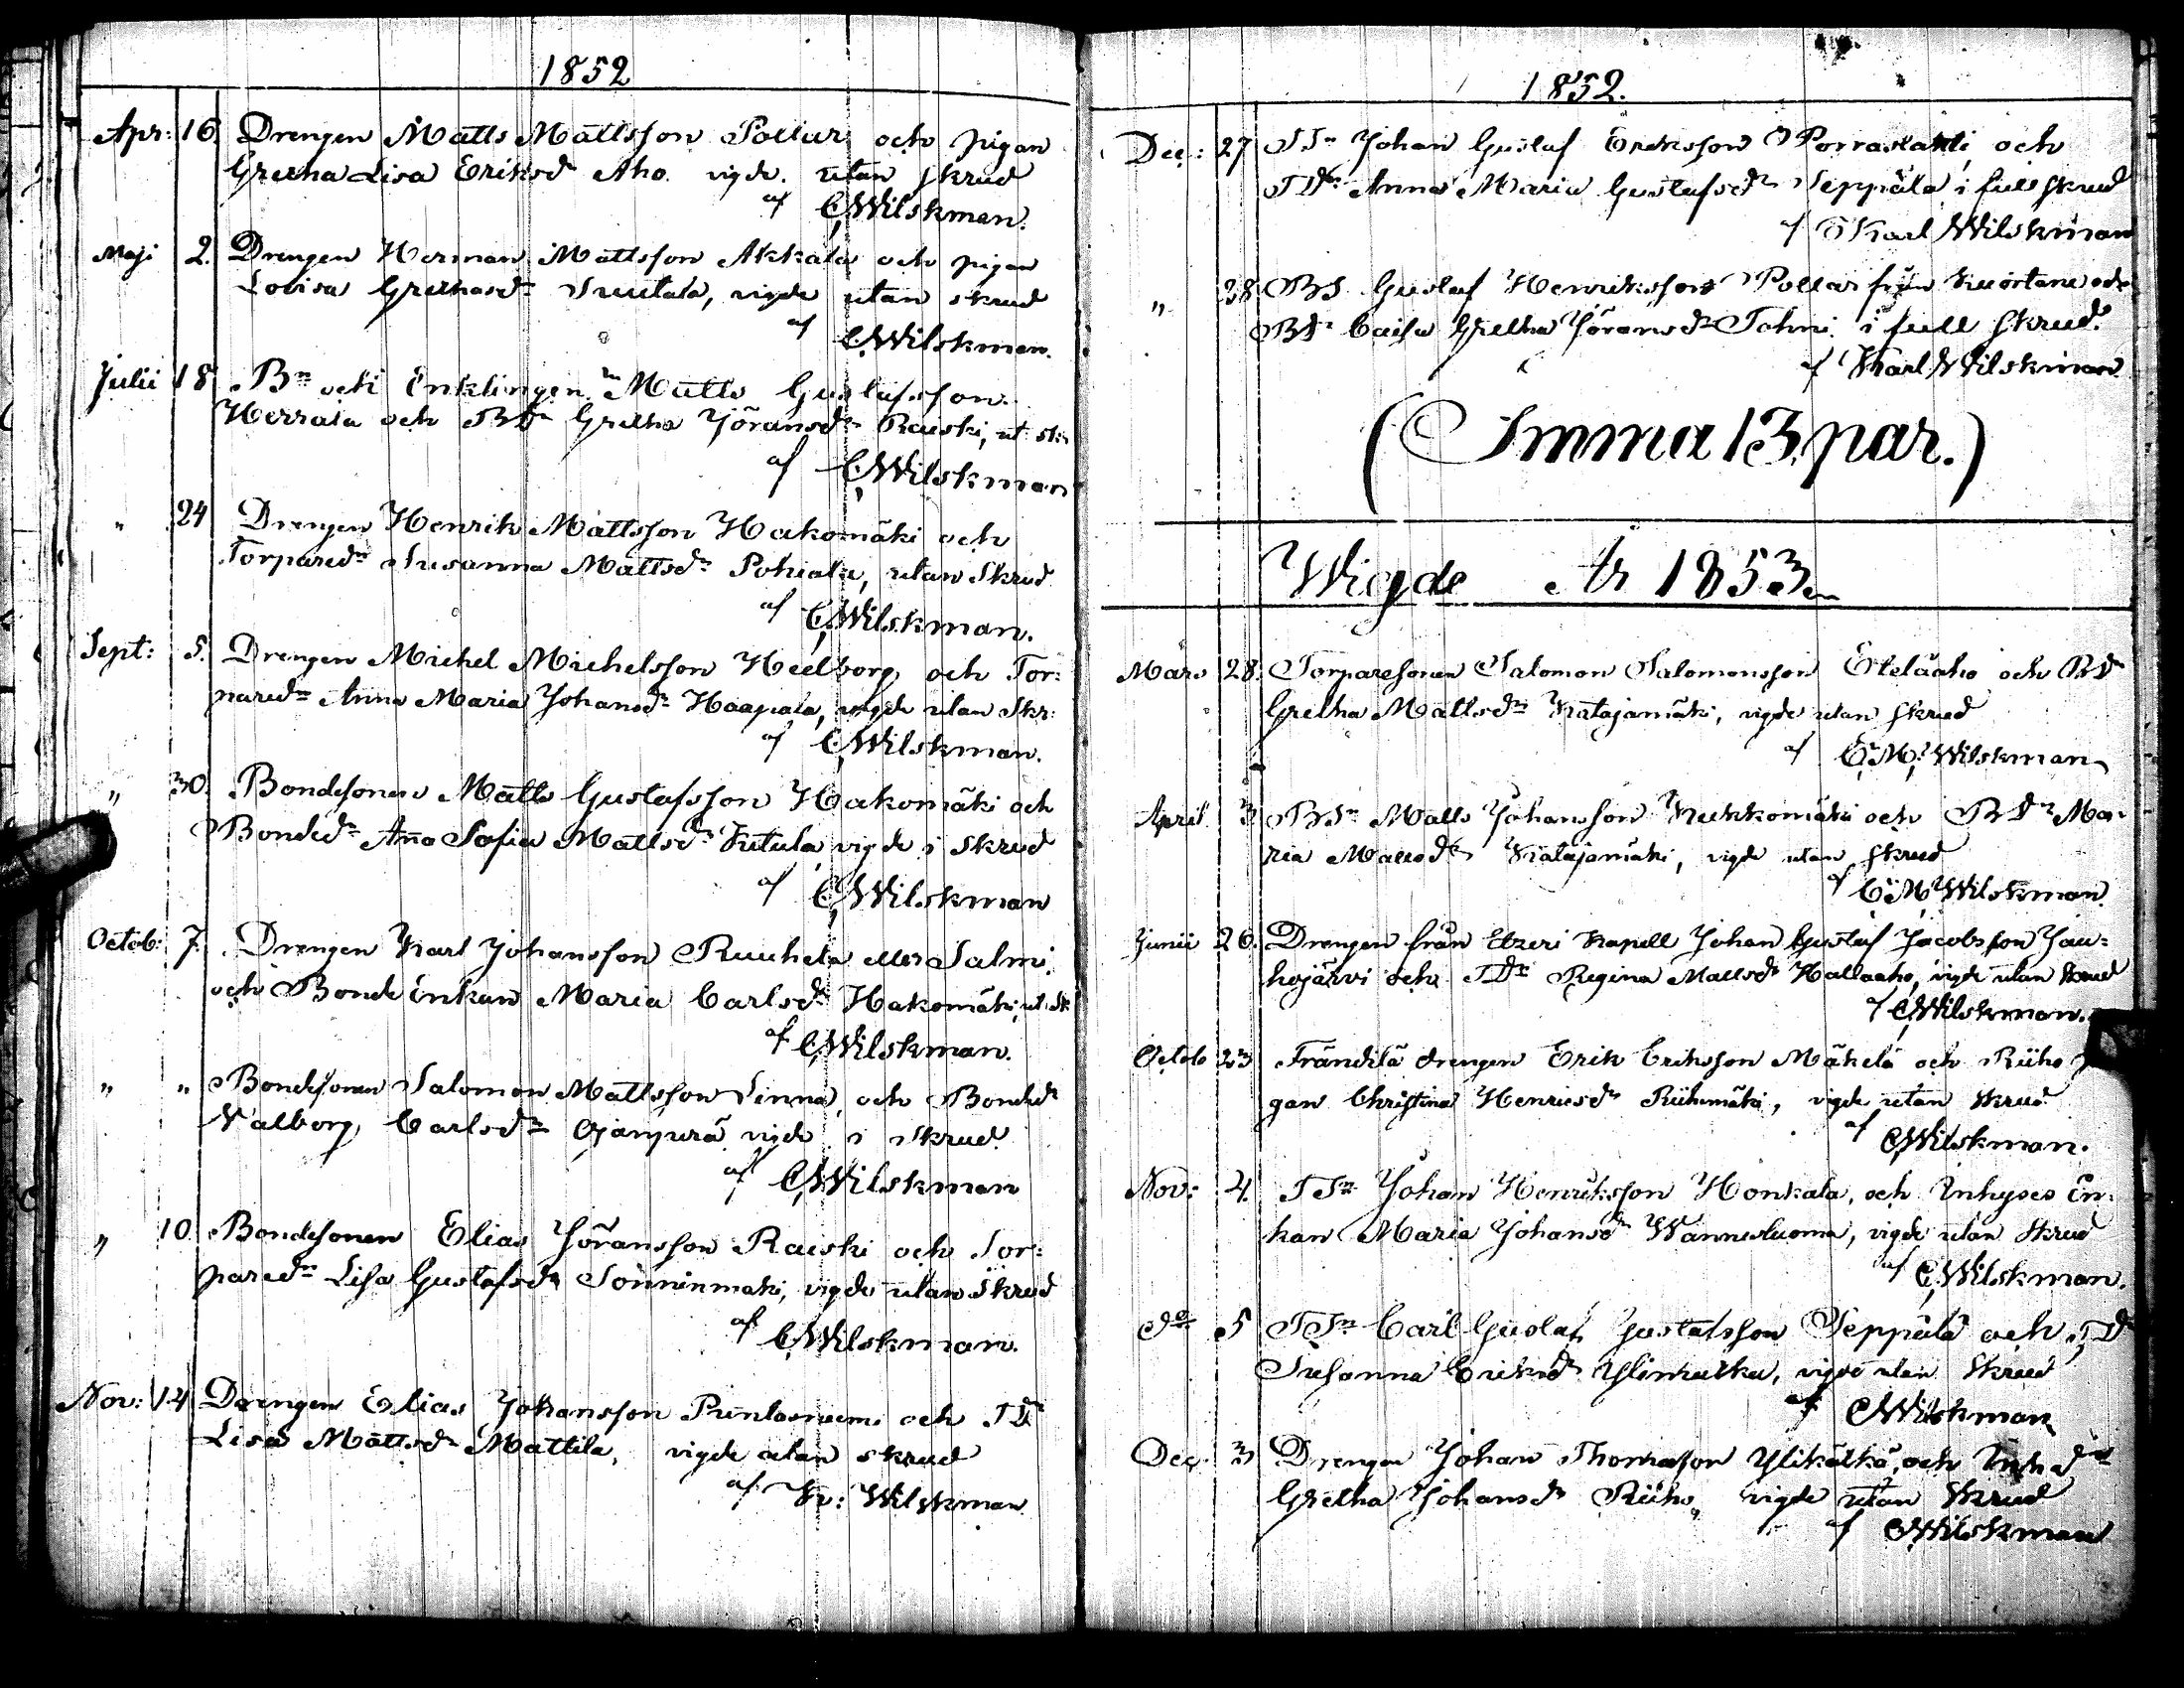 1852
Apr: 16. Drengen Matts Mattsson Pollari och pigan
Gretha Lisa Eriksdr Aho vigde utan skrud
af CWilskman.
Maji 2. Drengen Herman Mattsson Akkala och pigan
Lovisa Grethasdr vigde utan skrud
af CWilskman.
Julii 18 Bn och Enklingen Matts Gustafsson
Herrala och BDr Gretha Jöransdr Raiski, ut. sk.
af CWilskman
" 24 Drengen Henrik Mattsson Hakomäki och
Torparedr Susanna Mattsdr utan Skrud
af CWilskman.
Sept: 5. Drengen Michel Michelsson och Tor:
paredr Anna Maria Johansdr Haapala, vigde utan Skr:
af CWilskman.
" 30. Bondesonen Matts Gustafsson Hakomäki och
Bondedr Aña Sofia Mattsdr vigde i skrud
af CWilskman
Octob: 7. Drengen Karl Johansson Ruuhela eller Salmi
och Bonde Enkan Maria Carlsdr Hakomäki, ut. Sk
af CWilskman.
" " Bondesonen Salomon Mattsson och Bondedr
Valborg Carlsdr vigde i skrud
af CWilskman
" 10 Bondesonen Elias Jöransson Raiski och Tor:
paredr Lisa Gustafsdr vigde utan Skrud
af CWilskman.
Nov: 14 Drengen Elias Johansson och TDr
Lisa Mattsdr Mattila, vigde utan skrud
af Wilskman
1852.
Dec: 27 TSn Johan Gustaf Eriksson Porraslahti och
TDr Anna Maria Gustafsdr Seppälä i full skrud
af Karl Wilskman
" 28 BS Gustaf Henriksson Pollari från Kuortane och
BDr Caisa Gretha Jöransdr i full skrud.
af Karl Wilskman.
(Summa 13 par.)
Wigde År 1853
Mars 28. Torparesonen Salomon Salomonsson Eteläaho och BDr
Gretha Mattsdr Katajamäki, vigde utan skrud
af C. M. Wilskman
April 3 BSn Matts Johansson Kukkomäki och BDr Ma-
ria Mattsdr Katajamäki, vigde utan skrud
af C. M. Wilskman
Junii 26. Drengen från Etzeri Kapell Johan Gustaf Jacobsson Jau-
hojärvi och TDr Regina Mattsdr Hallaaho, vigde utan skrud
af CWilskman.
Octob 23 Frändilä drengen Erik Eriksson Mäkelä och Riiho
gan Christina Henricsdr Riihimäki, vigde utan skrud
af CWilskman.
Nov: 4. TSn Johan Henriksson Honkala, och Inhyses En-
kan Maria Johansdr Wannesluoma, vigde utan skrud
af CWilskman.
do 5 TSn Carl Gustaf Gustafsson Seppälä och TDr
Susanna Eriksdr vigde utan Skrud
af CWilskman
Dec. 3 Drengen Johan Thomasson Ylikätkä, och Inh. dr
Gretha Johansdr Riiho, vigde utan skrud
af CWilskman